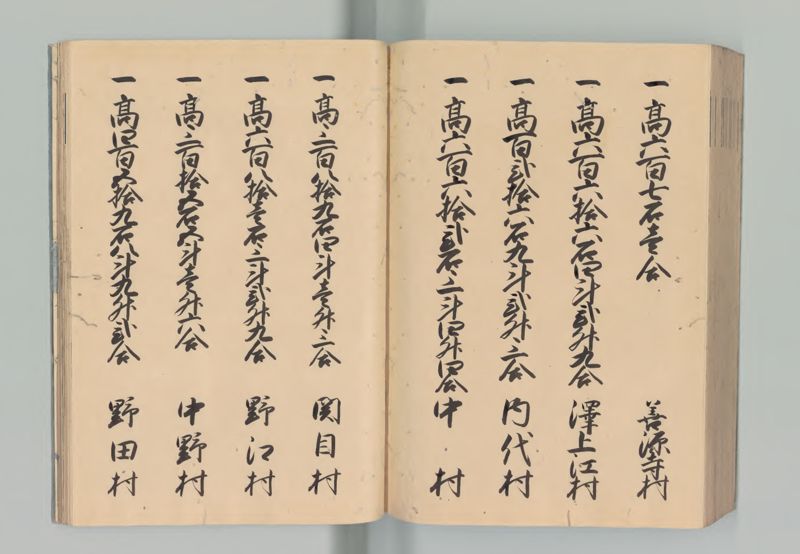 一高六百七石壱合 善源寺村
一高六百六拾六石四斗弐升九合 澤上江村
一高百弐拾六石九斗弐升三合 内代村
一高六百六拾弐石三斗四升四合 中村
一高三百八拾九石四斗壱升三合 関目村
一高六百八拾壱石三斗弐升九合 野江村
一高三百拾五石五斗壱升六合 中野村
一高四百五拾九石八斗九升弐合 野田村